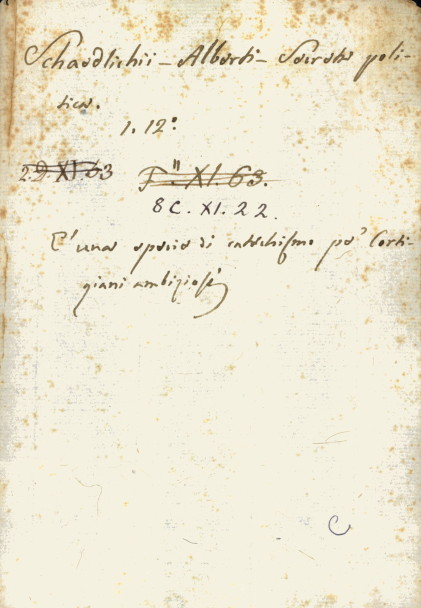 Schaedlichii - Alberti - Secreta poli-
tica.
1. 12º
2. D. XI. 63 F". XI. 63.
8 C. XI. 22.
E' una specie di catechismo pe' Corti-
giani ambiziosi
C